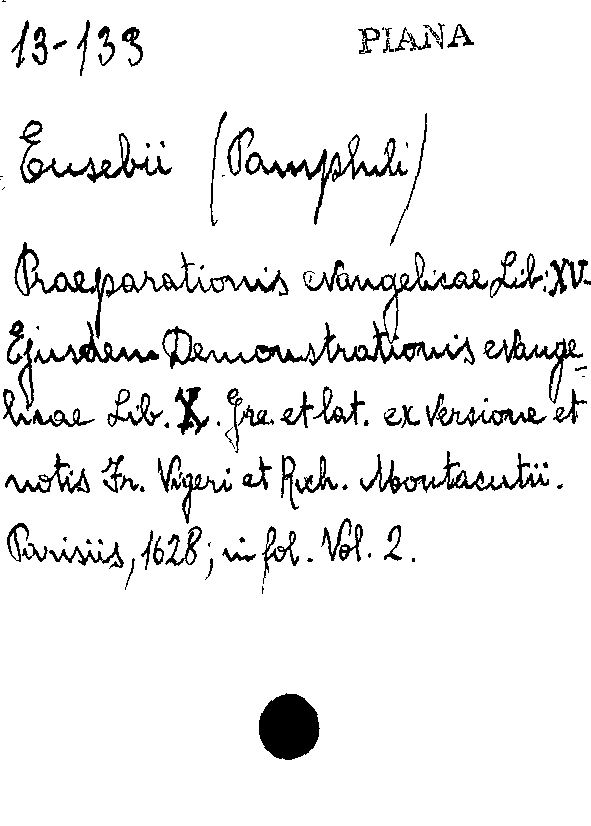 13-133
PIANA
Eusebii (Pamphili)
Praeparationis evangelicae Lib: XV.
Ejusdem Demonstrationis evange-
licae Lib. X. Gre. et lat. ex versione et
notis Fr. Vigeri et Rich. Montacutii.
Parisiis, 1628; in fol. Vol. 2.